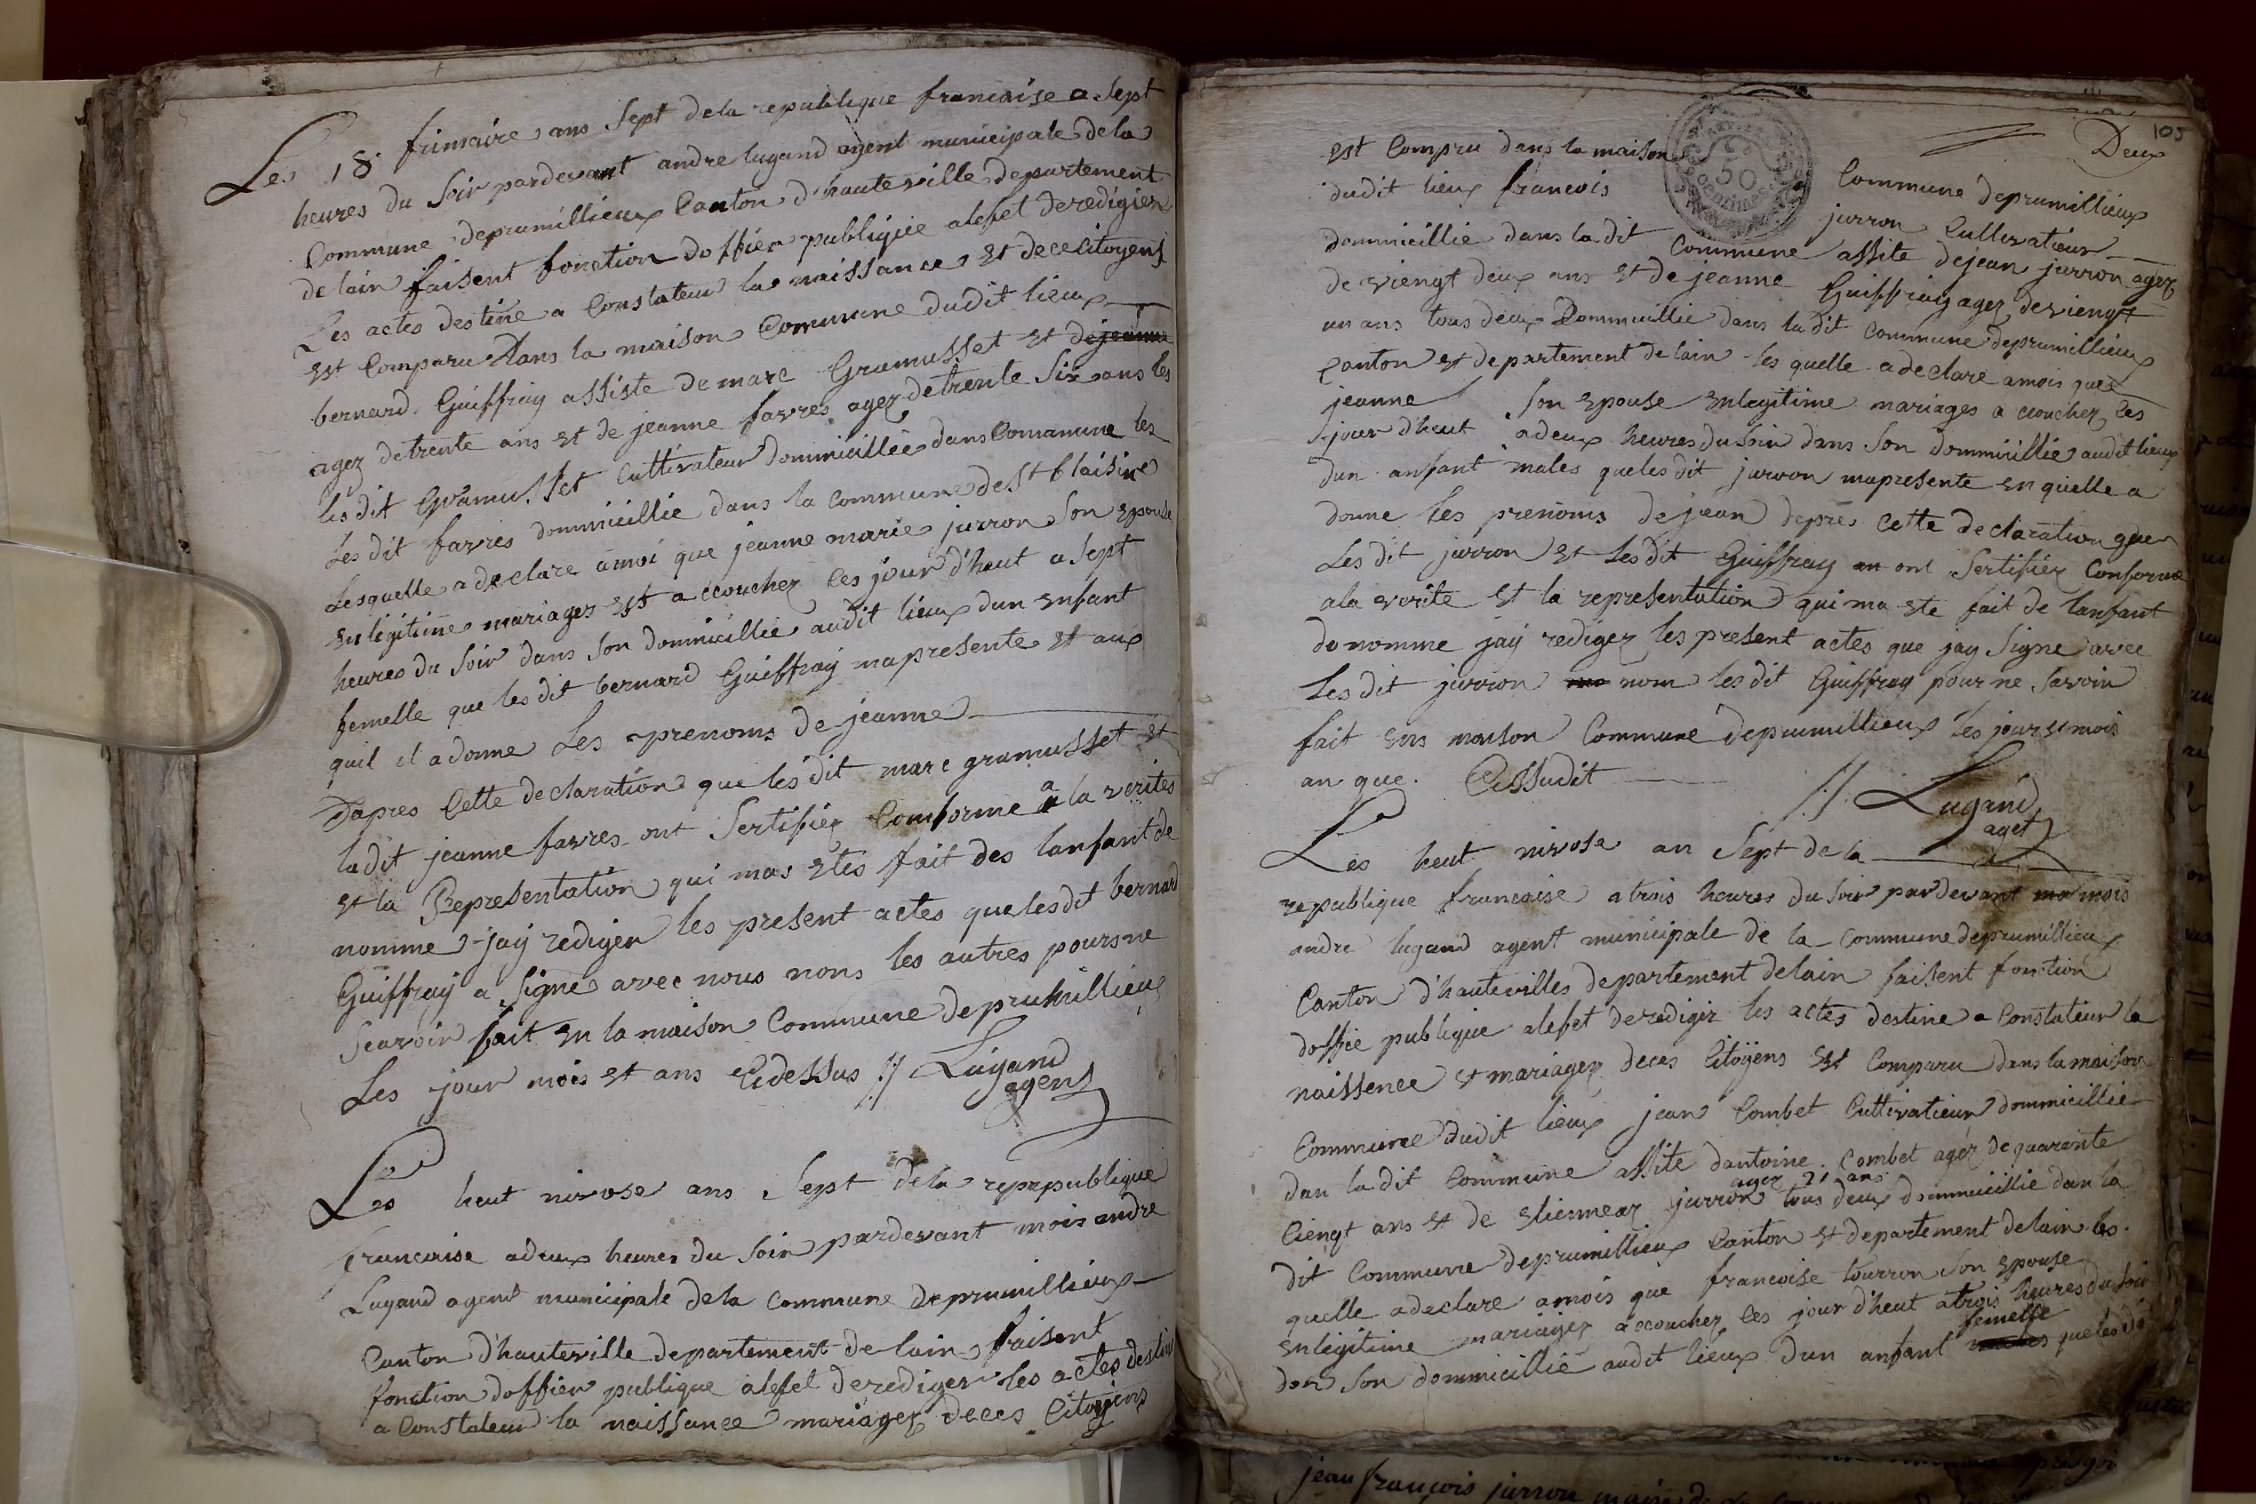 Les 18 frimaire ans Sept dela republique francaise a Sept
heures du Soir pardevant andre lugand agent municipale dela
Commune deprumillieux Canton d'hauteville departement
de lain faisent fonction doffier publiqúe alefet deredigier
Les actes destine a Constateur la naissance et dece Citoyens
est Comparu dans la maison Commune dudit lieux
bernard Guiffray assiste demarc Gramusset et dejeanne
agez detrente ans et de jeanne favres agez detrente Six ans les
lesdit Gramusset Cultivateur dommicillie dans Comamune les
Lesdit favres dommicillie dans la Commune de St blaisine
Lesquelle a declare amoi que jeanne marie jurron Son epouse
en legitime mariages est a ccouchez Ces jour d'heut a Sept
heures du Soir dans Son dommicillie audit lieux dun enfant
femelle que lesdit bernard Guiffray mapresente et aux
quil il adonne Les prenoms de jeanne
Dapres Cette declaration que lesdit marc gramusset et
ladit jeanne favres ont Sertifiez Conforme a la verites
et la Representation qui mas etes fait des lanfant de
nomme jay redigen les present actes quelesdit bernard
Guiffray a Signe avec nous nons les autres poursne
Scavoir fait en la maison Commune deprumillieux
Les jour mois et ans Cidessus // Lugand
agent
Les heut nivose ans Sept dela reprepublique
francaise adeux heures du Soir pardevant mois andre
Lugand agent municipale dela Commune deprumillieux
Canton d'hauteville departement de lain faisent
fonction doffier publique alefet deredigen les actes destine
a Constateur la naissance mariagez deces Citoyens
105
Deux
50
est Compru dans la maison Commune deprumillieux
dudit lieux francois jurron Cultivatieur
dommicillie dans ladit Commune assite dejean jurron agez
de viengt deux ans et de jeanne Guiffray agez deviengt
un ans tous deux Dommicillie dans ladit Commune deprumillieux
Canton et departement delain les quelle adeclare amois que
jeanne Son epouse enlegitime mariages a ccouchez Ces
jour d'heut adeux heures du Soir dans Son dommicillie audit lieux
dun anfant males queles dit jurron mapresente en quelle a
donne les prenoms dejean depres Cette declaration quen
Les dit jurron et lesdit Guiffray en ont Sertifiez Conforme
ala verite et la representation qui ma ete fait de lanfant
denomme jay redigez les present actes que jay Signe avec
Lesdit jurron nom lesdit Guiffray pour ne Savoir
fait ens maison Commune deprumillieux les jour et mois
an que Cissudit // Lugand
aget
Les heut nivose an Sept de la
republique francaise atrois heures du Soir pardevant mois
andre lugand agent municipale de la Commune deprumillieux
Canton d'hautevilles departement delain faisent fonction
doffie publique alefet deredigir les actes destine a Constateur la
naissence et mariagez deces Citoyens est Comparu dans lamaison
Commune dudit lieux jean Combet Cultivatieur dommicillie
dan ladit Commune assite dantoine Combet agez dequarente
agez 21 ans
Ciengt ans et de etiennear jurron tous deux dommicillie dan la
dit Commune deprumillieux Canton et departement delain les
quelle adeclare amois que francoise tourron Son epouse
enlegitime mariagez accouchez Ces jour d'heut atrois heures du Soir
femelle
dans Son dommicillie audit lieux Dun anfant males queles dit
jean francois jurron